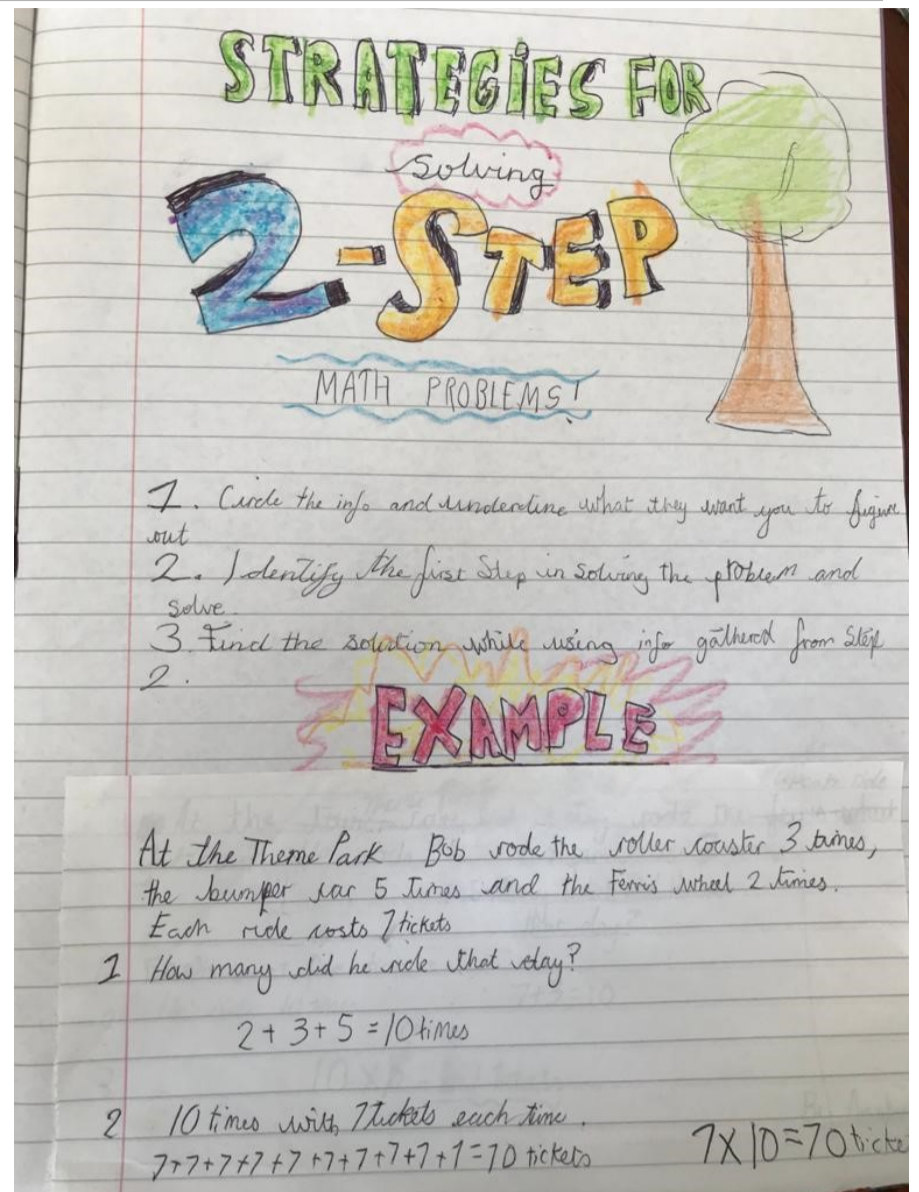 STRATEGIES FOR
Solving
2-STEP
MATH PROBLEMS!
1. Circle the info and underline what they want you to figure
out
2. Identify the first Step in solving the problem and
solve.
3. Find the solution while using info gathered from Step
2.
EXAMPLE
At the Theme Park Bob rode the roller coaster 3 times,
the bumper car 5 Times and the Ferris wheel 2 times.
Each ride costs 7 tickets
1 How many did he ride that day?
2 + 3 + 5 = 10 times
2 10 times with 7 tickets each time.
7+7+7+7+7+7+7+7+7+7=70 tickets
7 X 10 = 70 ticke